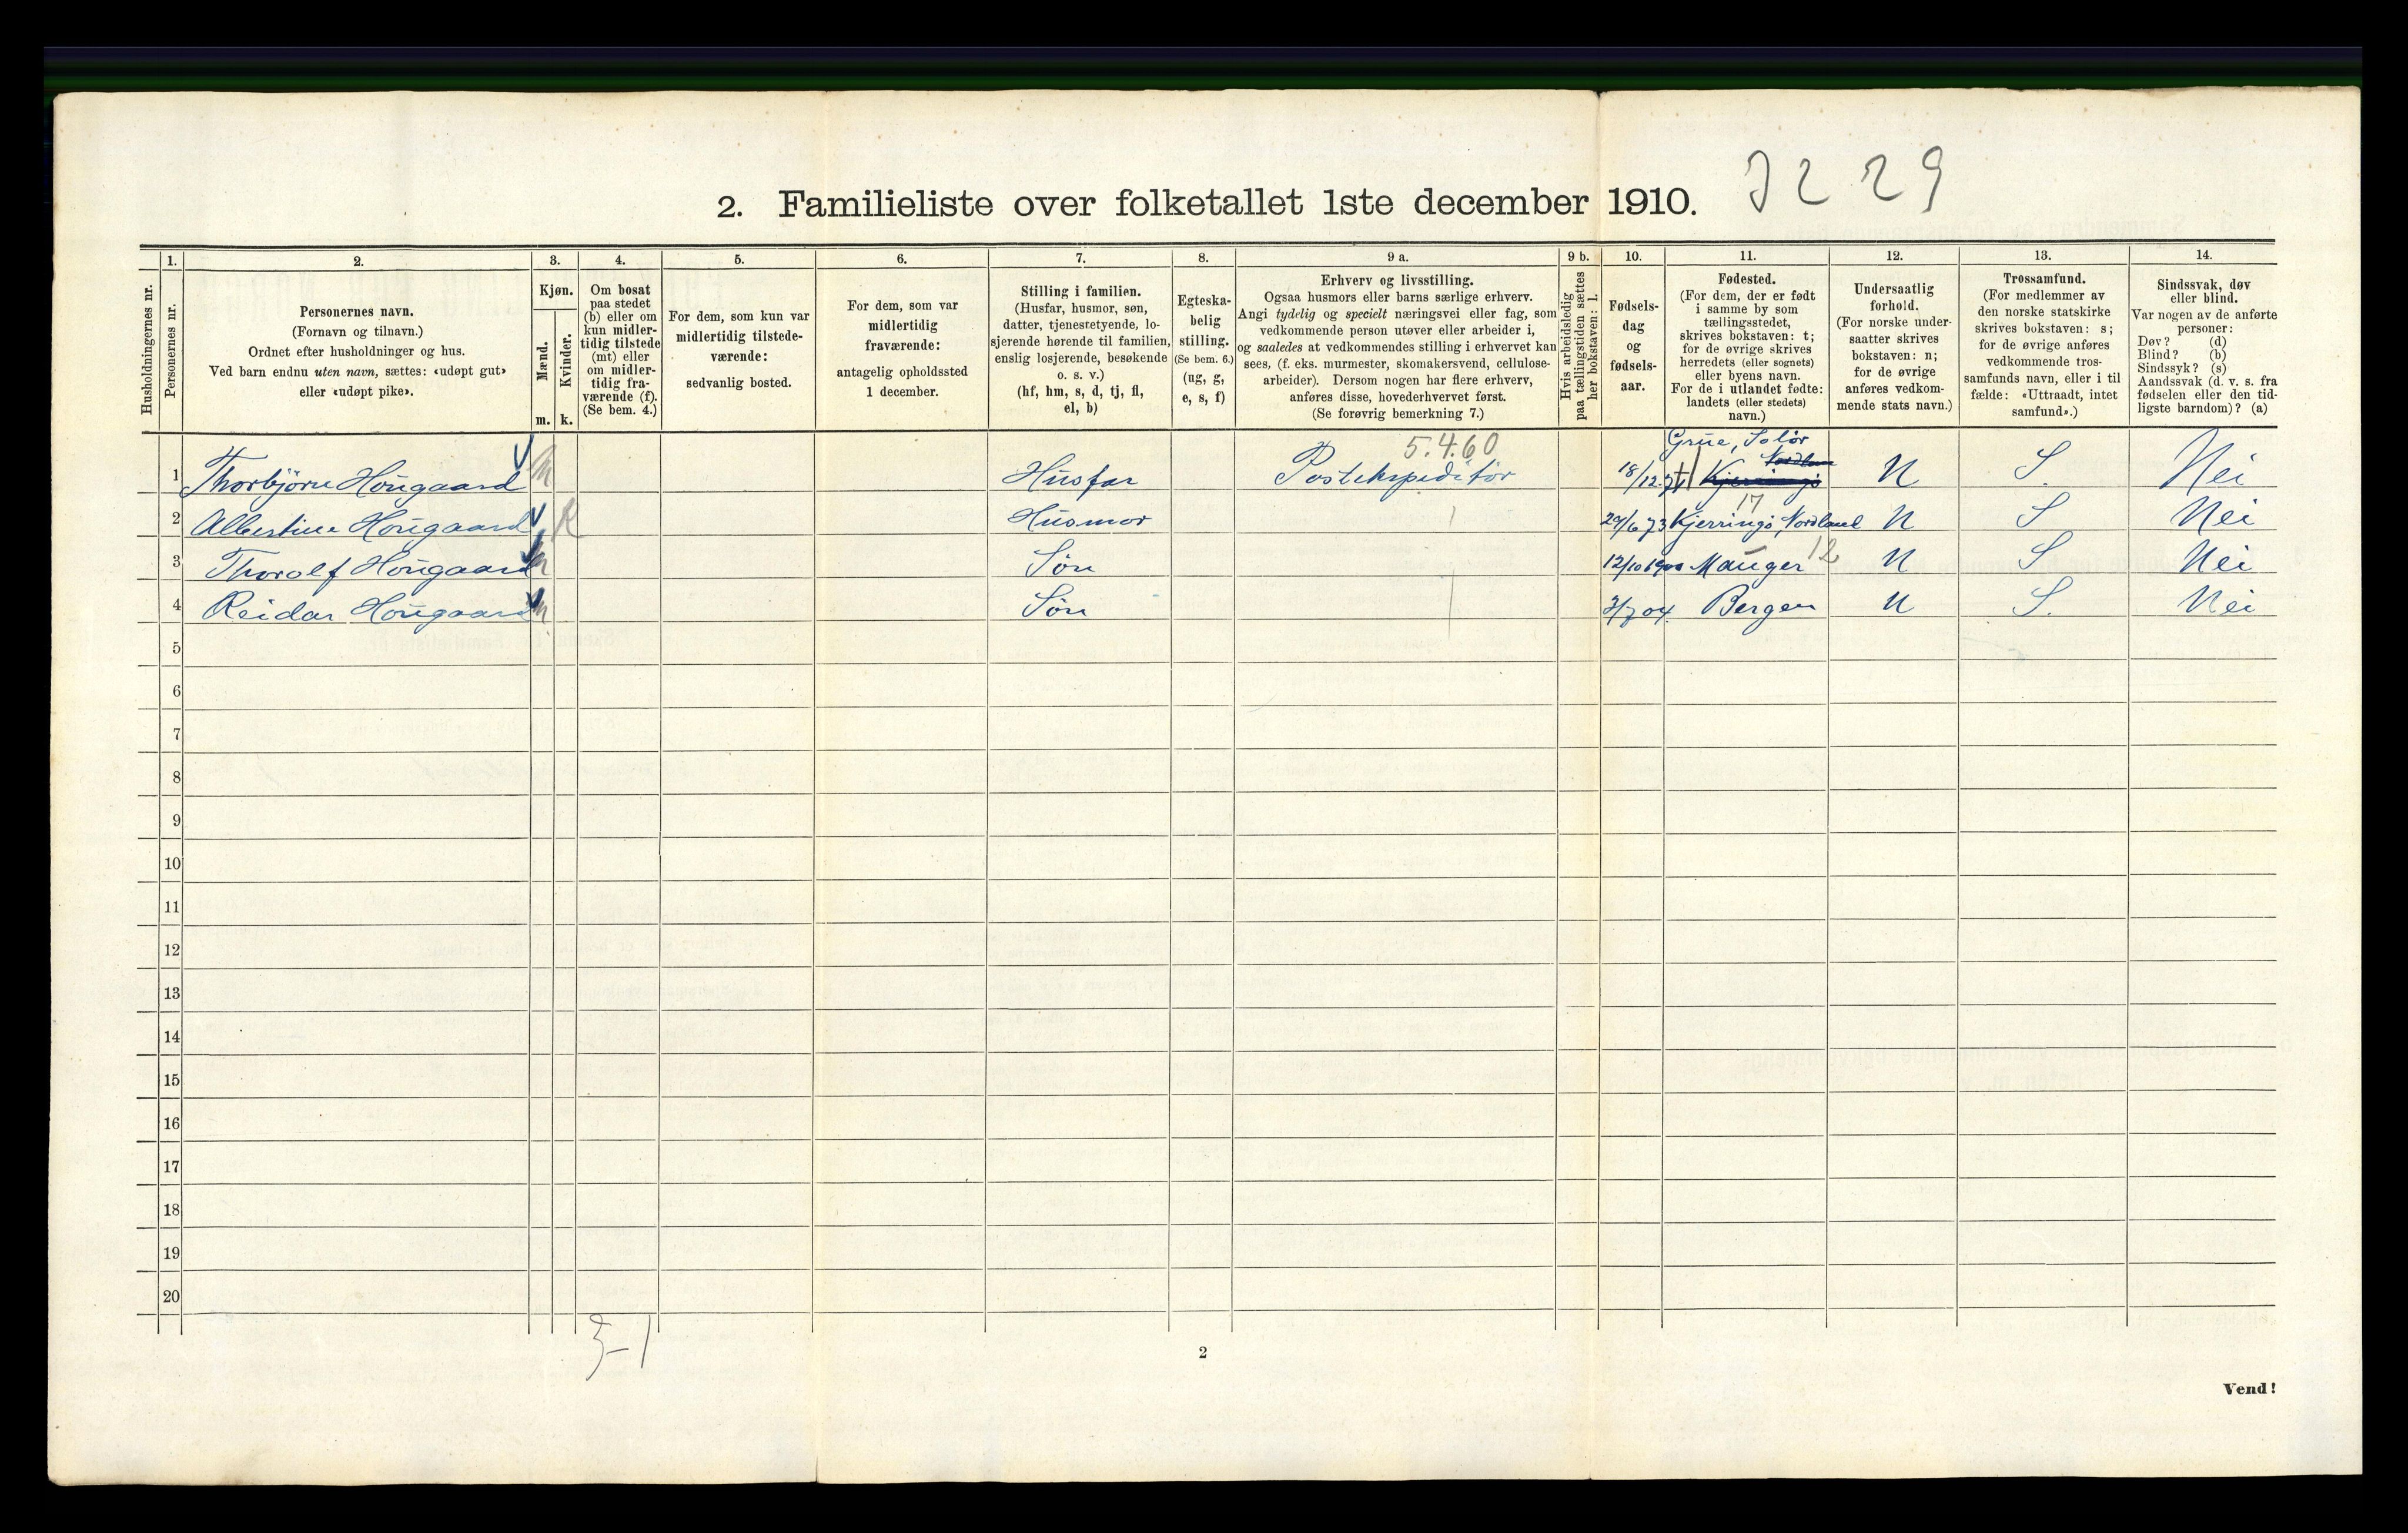 J 2 29
2. Familieliste over folketallet 1ste december 1910.
Husholdningernes nr.
1.
Personernes nr.
2.
Personernes navn.
(Fornavn og tilnavn.)
Ordnet efter husholdninger og hus.
Ved barn endnu uten navn, sættes: «udøpt gut»
eller «udøpt pike».
3.
Kjøn.
Mænd.
Kvinder.
m. k.
4.
Om bosat
paa stedet
(b) eller om
kun midler-
tidig tilstede
(mt) eller
om midler-
tidig fra-
værende (f).
(Se bem. 4.)
5.
For dem, som kun var
midlertidig tilstede-
værende:
sedvanlig bosted.
6.
For dem, som var
midlertidig
fraværende:
antagelig opholdssted
1 december.
7.
Stilling i familien.
(Husfar, husmor, søn,
datter, tjenestetyende, lo-
sjerende hørende til familien,
enslig losjerende, besøkende
o. s. v.)
(hf, hm, s, d, tj, fl,
el, b)
8.
Egteska-
belig
stilling.
(Se bem. 6.)
(ug, g,
e, s, f)
9 a.
Erhverv og livsstilling.
Ogsaa husmors eller barns særlige erhverv.
Angi tydelig og specielt næringsvei eller fag, som
vedkommende person utøver eller arbeider i,
og saaledes at vedkommendes stilling i erhvervet kan
sees, (f. eks. murmester, skomakersvend, cellulose-
arbeider). Dersom nogen har flere erhverv,
anføres disse, hovederhvervet først.
(Se forøvrig bemerkning 7.)
9 b.
Hvis arbeidsledig
paa tællingstiden sættes
her bokstaven: l.
10.
Fødsels-
dag
og
fødsels-
aar.
11.
Fødested.
(For dem, der er født
i samme by som
tællingsstedet,
skrives bokstaven: t;
for de øvrige skrives
herredets (eller sognets)
eller byens navn.
For de i utlandet fødte:
landets (eller stedets)
navn.)
12.
Undersaatlig
forhold.
(For norske under-
saatter skrives
bokstaven: n;
for de øvrige
anføres vedkom-
mende stats navn.)
13.
Trossamfund.
(For medlemmer av
den norske statskirke
skrives bokstaven: s;
for de øvrige anføres
vedkommende tros-
samfunds navn, eller i til
fælde: «Uttraadt, intet
samfund».)
14.
Sindssvak, døv
eller blind.
Var nogen av de anførte
personer:
Døv? (d)
Blind? (b)
Sindssyk? (s)
Aandssvak (d. v. s. fra
fødselen eller den tid-
ligste barndom)? (a)
5.4.60 Grue, Solør
1 Thorbjørn Hougaard m Husfar Postekspeditør 18/12 71 Kjerringø Nordland N S. Nei
17
2 Albertine Hougaard K Husmor 29/6 73 Kjerringø, Nordland N S Nei
3 Thorolf Hougaard m Søn 12/10 1900 Manger 12 N S Nei
4 Reidar Hougaard m Søn 3/7 04. Bergen N S. Nei
5
6
7
8
9
10
11
12
13
14
15
16
17
18
19
20
3-1
2
Vend!